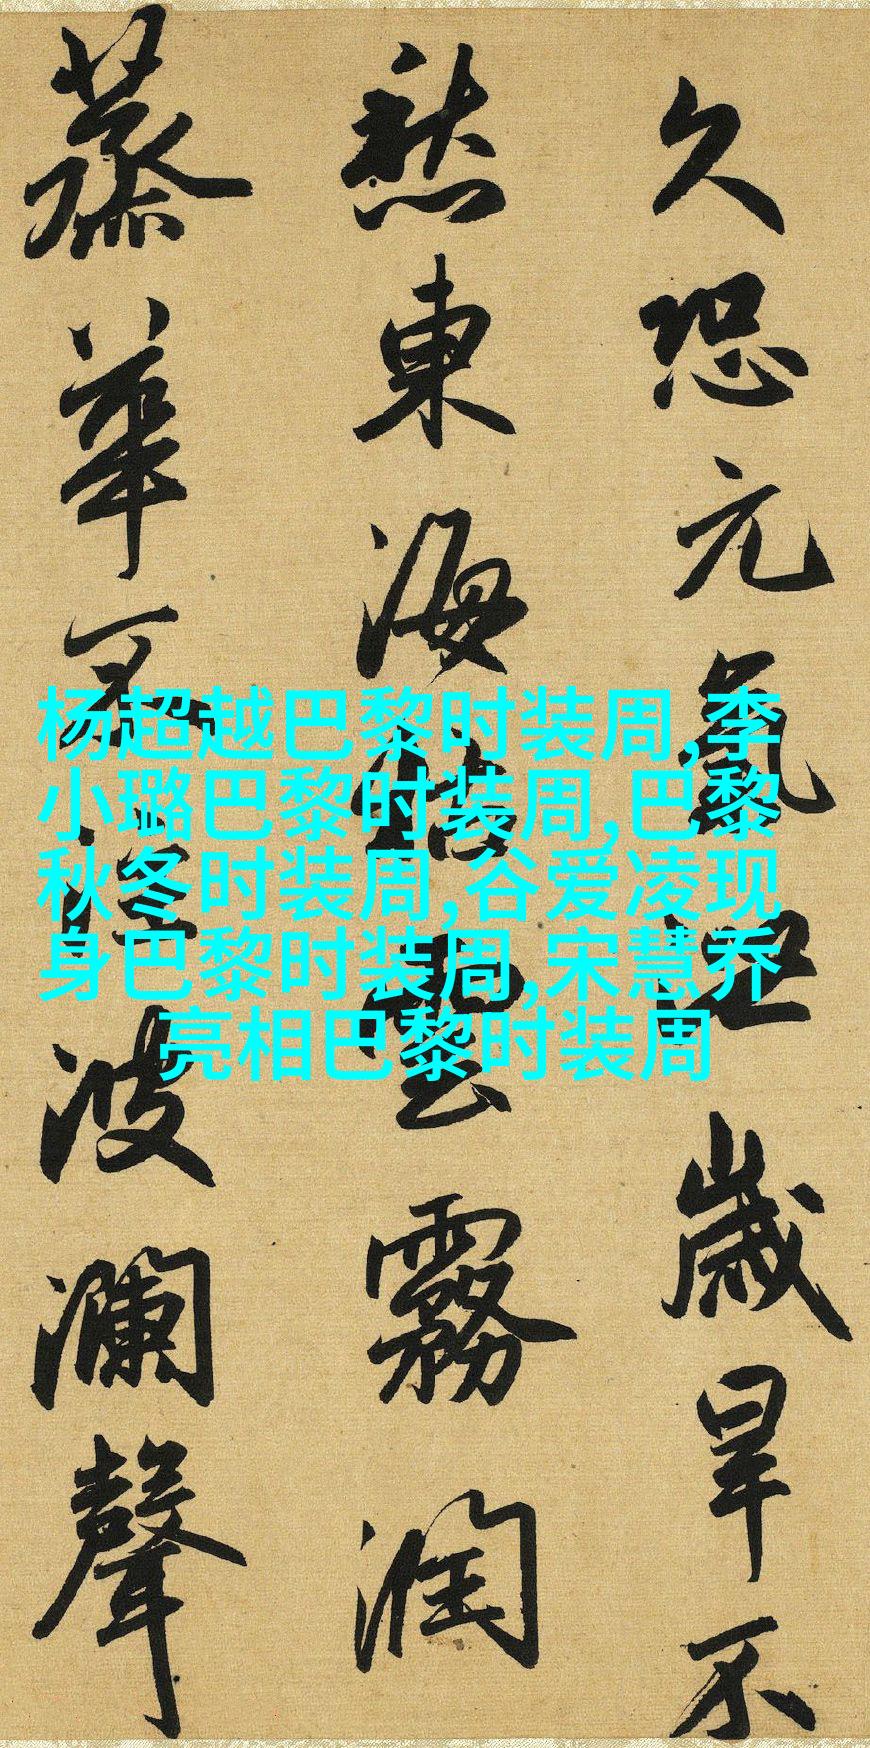 久恐元氣歲旱不
愁東海雲霧潤
蒸華波瀾聲
杨超越巴黎时装周,李
小璐巴黎时装周,巴黎
秋冬时装周,谷爱凌现
身巴黎时装周,宋慧乔
亮相巴黎时装周